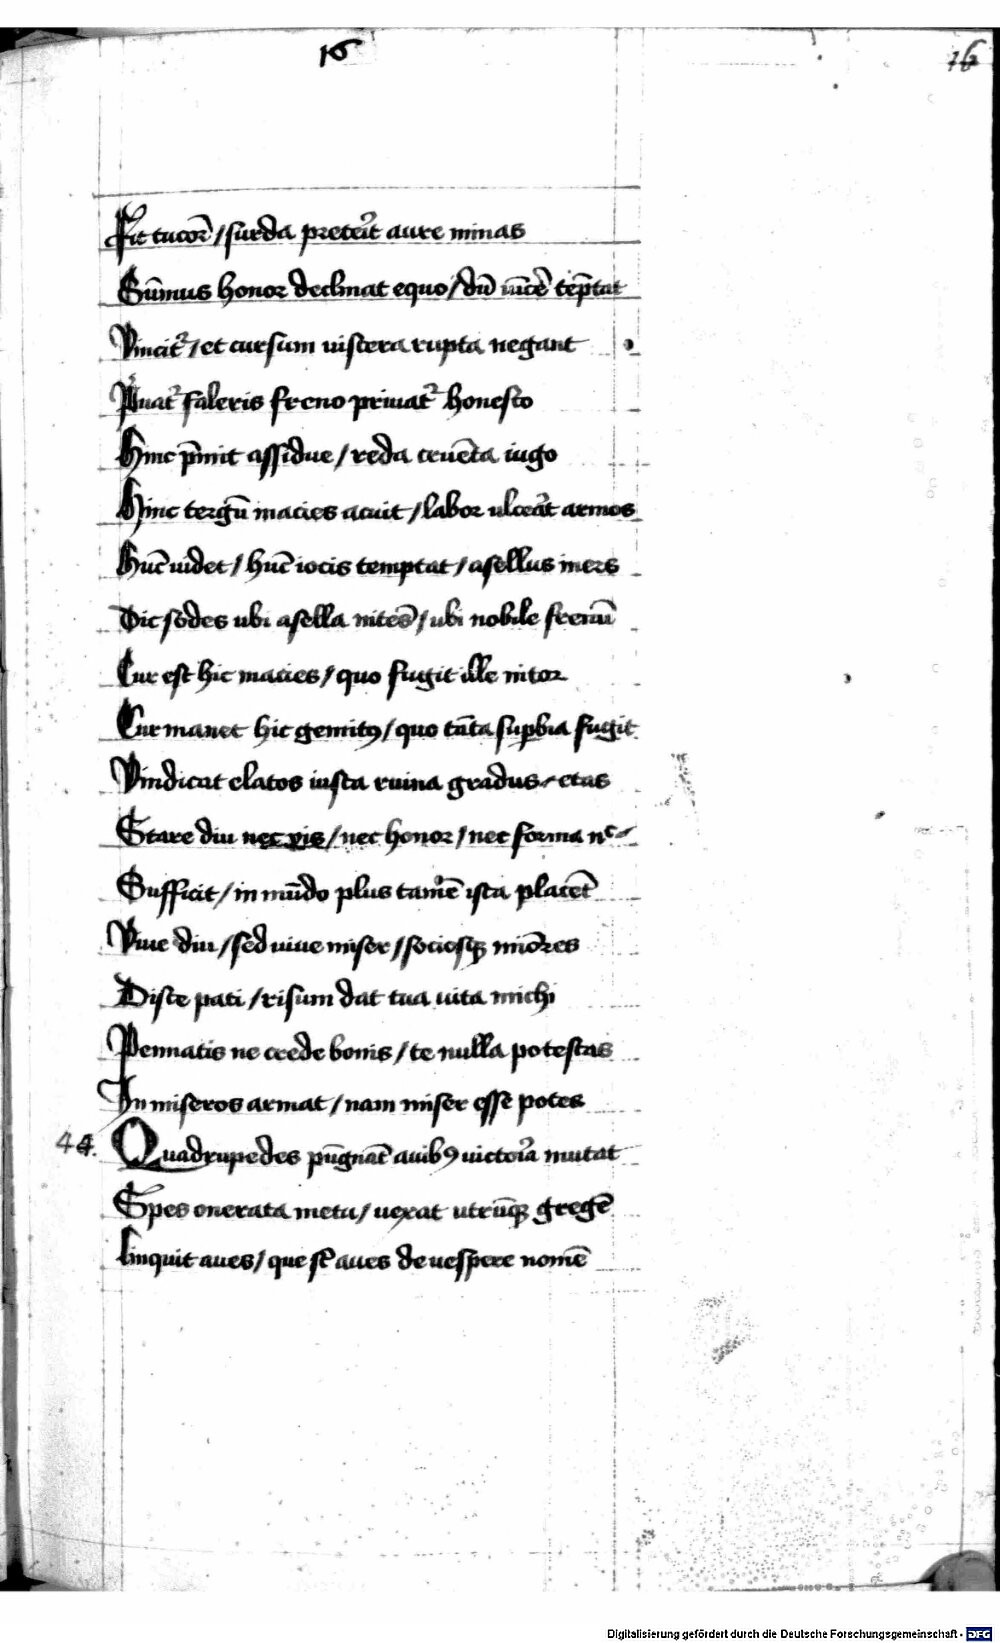 16
16
Fit tucor̄ / surda preteīt aure minas
Sūmus honor declinat equo / dū uīcē tēptat
Vincit᷑ / et cursum viscera rupta negant
Puat᷑ faleris freno priuat᷑ honesto
Hinc p̄mit assidue / reda cruēta iugo
Hinc tergū macies acuit / labor ulcerāt armos
Hūc videt / hūc iocis temptat / asellus iners
Dic sodes ubi asella nitēs / ubi nobile frenū
Cur est hic macies / quo fugit ille nitor
Cur manet hic gemitꝯ / quo tāta suꝑbia fugit
Vindicat elatos iusta ruina gradus etas
Stare diu nec vis / nec honor / nec forma nᶜ
Sufficit / in mūdo plus tamē ista placēt
Viue diu / sed viue miser / sociosqꝫ miōres
Disce pati / risum dat tua vita michi
Pennatis ne crede bonis / te nulla potestas
In miseros armat / nam miser esse potes
44. Quadrupedes pūgnāt auibꝯ victoīa mutat
Spes onerata metu / vexat utrūqꝫ gregē
Linquit aves / que sī aues de uespere nomē
Digitalisierung gefördert durch die Deutsche Forschungsgemeinschaft - DFG